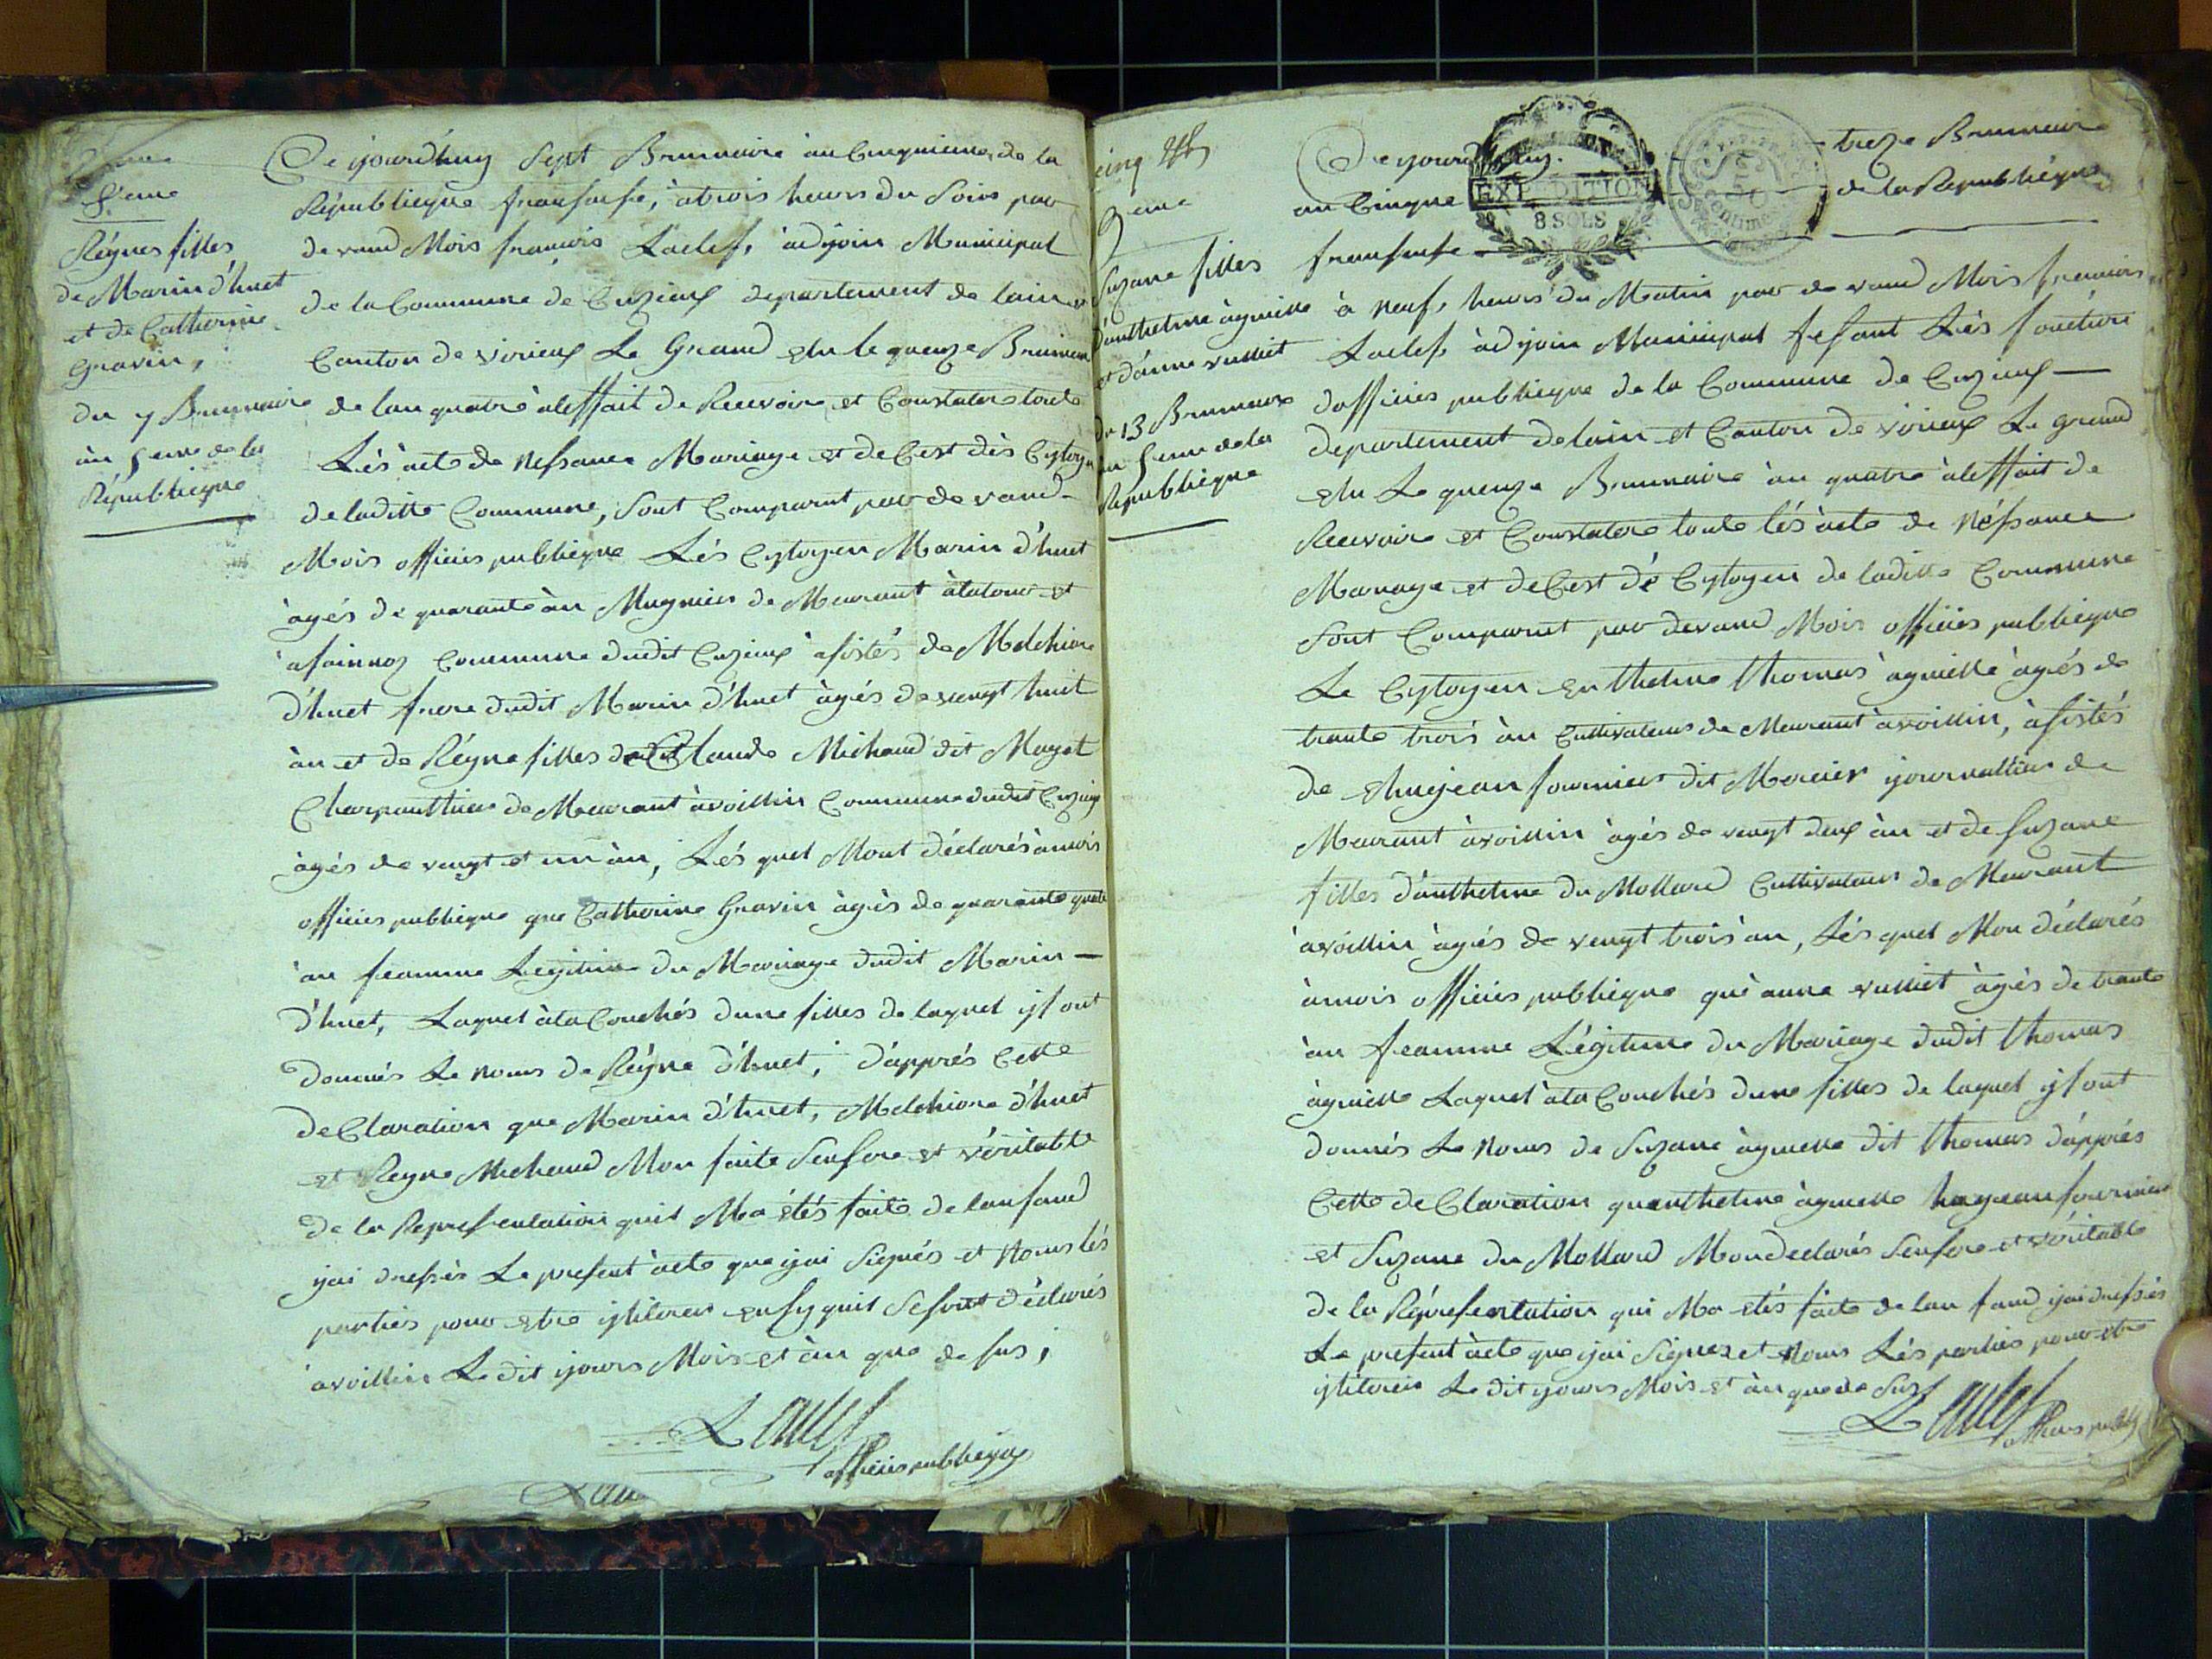 8eme
Régnes filles
de Marin d'huet
et de Catherine
Gravin,
du 7 Brumaire
àn 5eme de la
Républieque
Ce ijourd'huy Sept Brumaire àn Cinquieme de la
Républieque fransaise, à trois heurs du Soire par
devand Mois françois Laclef, àdjoin Municipal
de la Commune de Cuzieux departement de lain et
Canton de virieux Le Grand elu le quenze Brumaire
de lan quatre àleffait de Recevoire et Constatere toute
Lés àcte de Nessance Mariage et deCest dès Cytoyen
de laditte Commune, Sont Comparut par devand
Mois officiés publieque Lés Cytoyen Marin d'huet
àgés de quarante àn Mugnier de Meurant àlatour et
afainnoz Commune dudit Cuzieux àsistés de Melchiore
d'huet frere dudit Marin d'huet àgés de vengt huit
àn et de Régne filles de Claude Michaud dit Mayet
Charpanthier de Meurant àvoillin Commune dudit Cuzieux
àgés de vengt et un àn, Lés quel Mont déclarés àmois
officiés publieque que Catherine Gravin àgés de quarante quatre
àn feamme Legitime du Mariage dudit Marin
d'huet, Laquel àla Couchés dune filles de laquel ijl ont
donnés Le noms de Régne d'huet, d'apprés Cette
deClaration que Marin d'huet, Melchiore d'huet
et Regne Michaud Mon faite Sensere et véritable
de la Représentation quil Ma étés faite de lanfand
ijai dressés Le present àcte que ijai Signés et Nous lés
partiés pour etre ijlitérés ensy quil Se sont déclarés
àvoillin Le dit ijours Mois et àn que de sus,
Laclef
officiés publieque
cinq
9eme
Suzane filles
d'anthelme àguielle
et d'anne vulliet
du 13 Brumaire
àn 5eme de la
Republieque
EXPEDITION
8 SOLS
Ce ijourd'huy treze Brumaire
an Cinque de la Republieque
fransaise
à neufs heurs du Matin par devand Mois françois
Laclef àdjoin Municipal fesant Lés foncture
dofficiés publieque de la Commune de Cuzieux
departement de lain et Canton de virieux Le grand
elu Le quenze Brumaire àn quatre àleffait de
Recevoire et Constatere toute lés àcte de Néssance
Mariage et deCest dé Cytoyen de laditte Commune
Sont Comparut par devand Mois officiés publieque
Le Cytoyen enthelme thomas àguielle àgés de
trante trois àn Cultivateur de Meurant àvoillin, àsistés
de hujean fournier dit Mercier ijournallier de
Meurant àvoillin àgés de vengt deux àn et de Suzane
filles d'anthelme du Mollard Cultivateur de Meurant
àvoillin àgiés de vengt trois àn, Lés quel Mon déclarés
àmois officiés publieque que anne vulliet àgés de trante
àn feamme Légitime du Mariage dudit thomas
àguielle Laquel àla Couchés dune filles de laquel ijl ont
donnés Le Noms de Suzane àguielle dit thomas d'apprés
Cette deClaration quanthelme àguielle hugeans fournier
et Suzane du Mollard Mon declarés Sensere et véritable
de la Réprésentation qui Ma etés faite de lan fand ijai dressés
Le present àcte que ijai Signez et Nous Lés partiés pour etre
ijlitérés Le dit ijours Mois et àn que de Sus
Laclef
officiés publieq